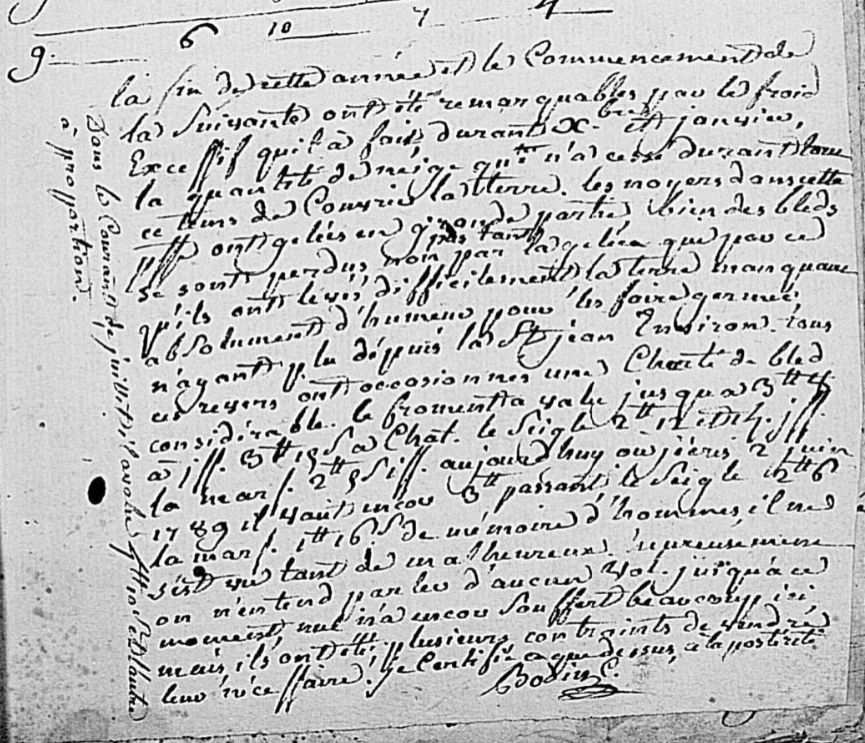 9. 6 10 7 4
la fin de cette année et le Commencement de
la Suivante ont été remarquables par le froid
Excessif quil a fait durant X.bre et janvier,
la quantité de néige qui n'a cessé durant tout
ce tems de Couvrir la terre. les noyers dans cette
ont gelées en grande partie bien des bleds
se sont perdus non pas tant par la gelée que par ce
qu'ils ont levés difficilement la terre manquant
absolument d'humeur pour les faire germer,
n'ayant plu dépuis la St jean Environ. tous
ces revers ont occasionnés une Cherté de bled
considérable. le froment a valu jusqua 3tt
à Chat. le Seigle 2tt
la mars. 2tt aujourdhuy où j'écris 2 juin
1789 il vaut encor 3tt passant le Seigle 2tt 6
la mars. 1tt 16s de mémoire d'hommes il ne
s'est vu tant de malheureux. heureusement
on n'entend parler d'aucun vol. jusqu'à ce
moment, nul n'a encor Souffert beaucoup ici
mais ils ont été plusieurs contraints de vendre
leur nécessaire. je Certifie ce que dessus, à la postérité
Bodin C.
Dans le Courant de juillet il a valu et l'autre
à proportion.